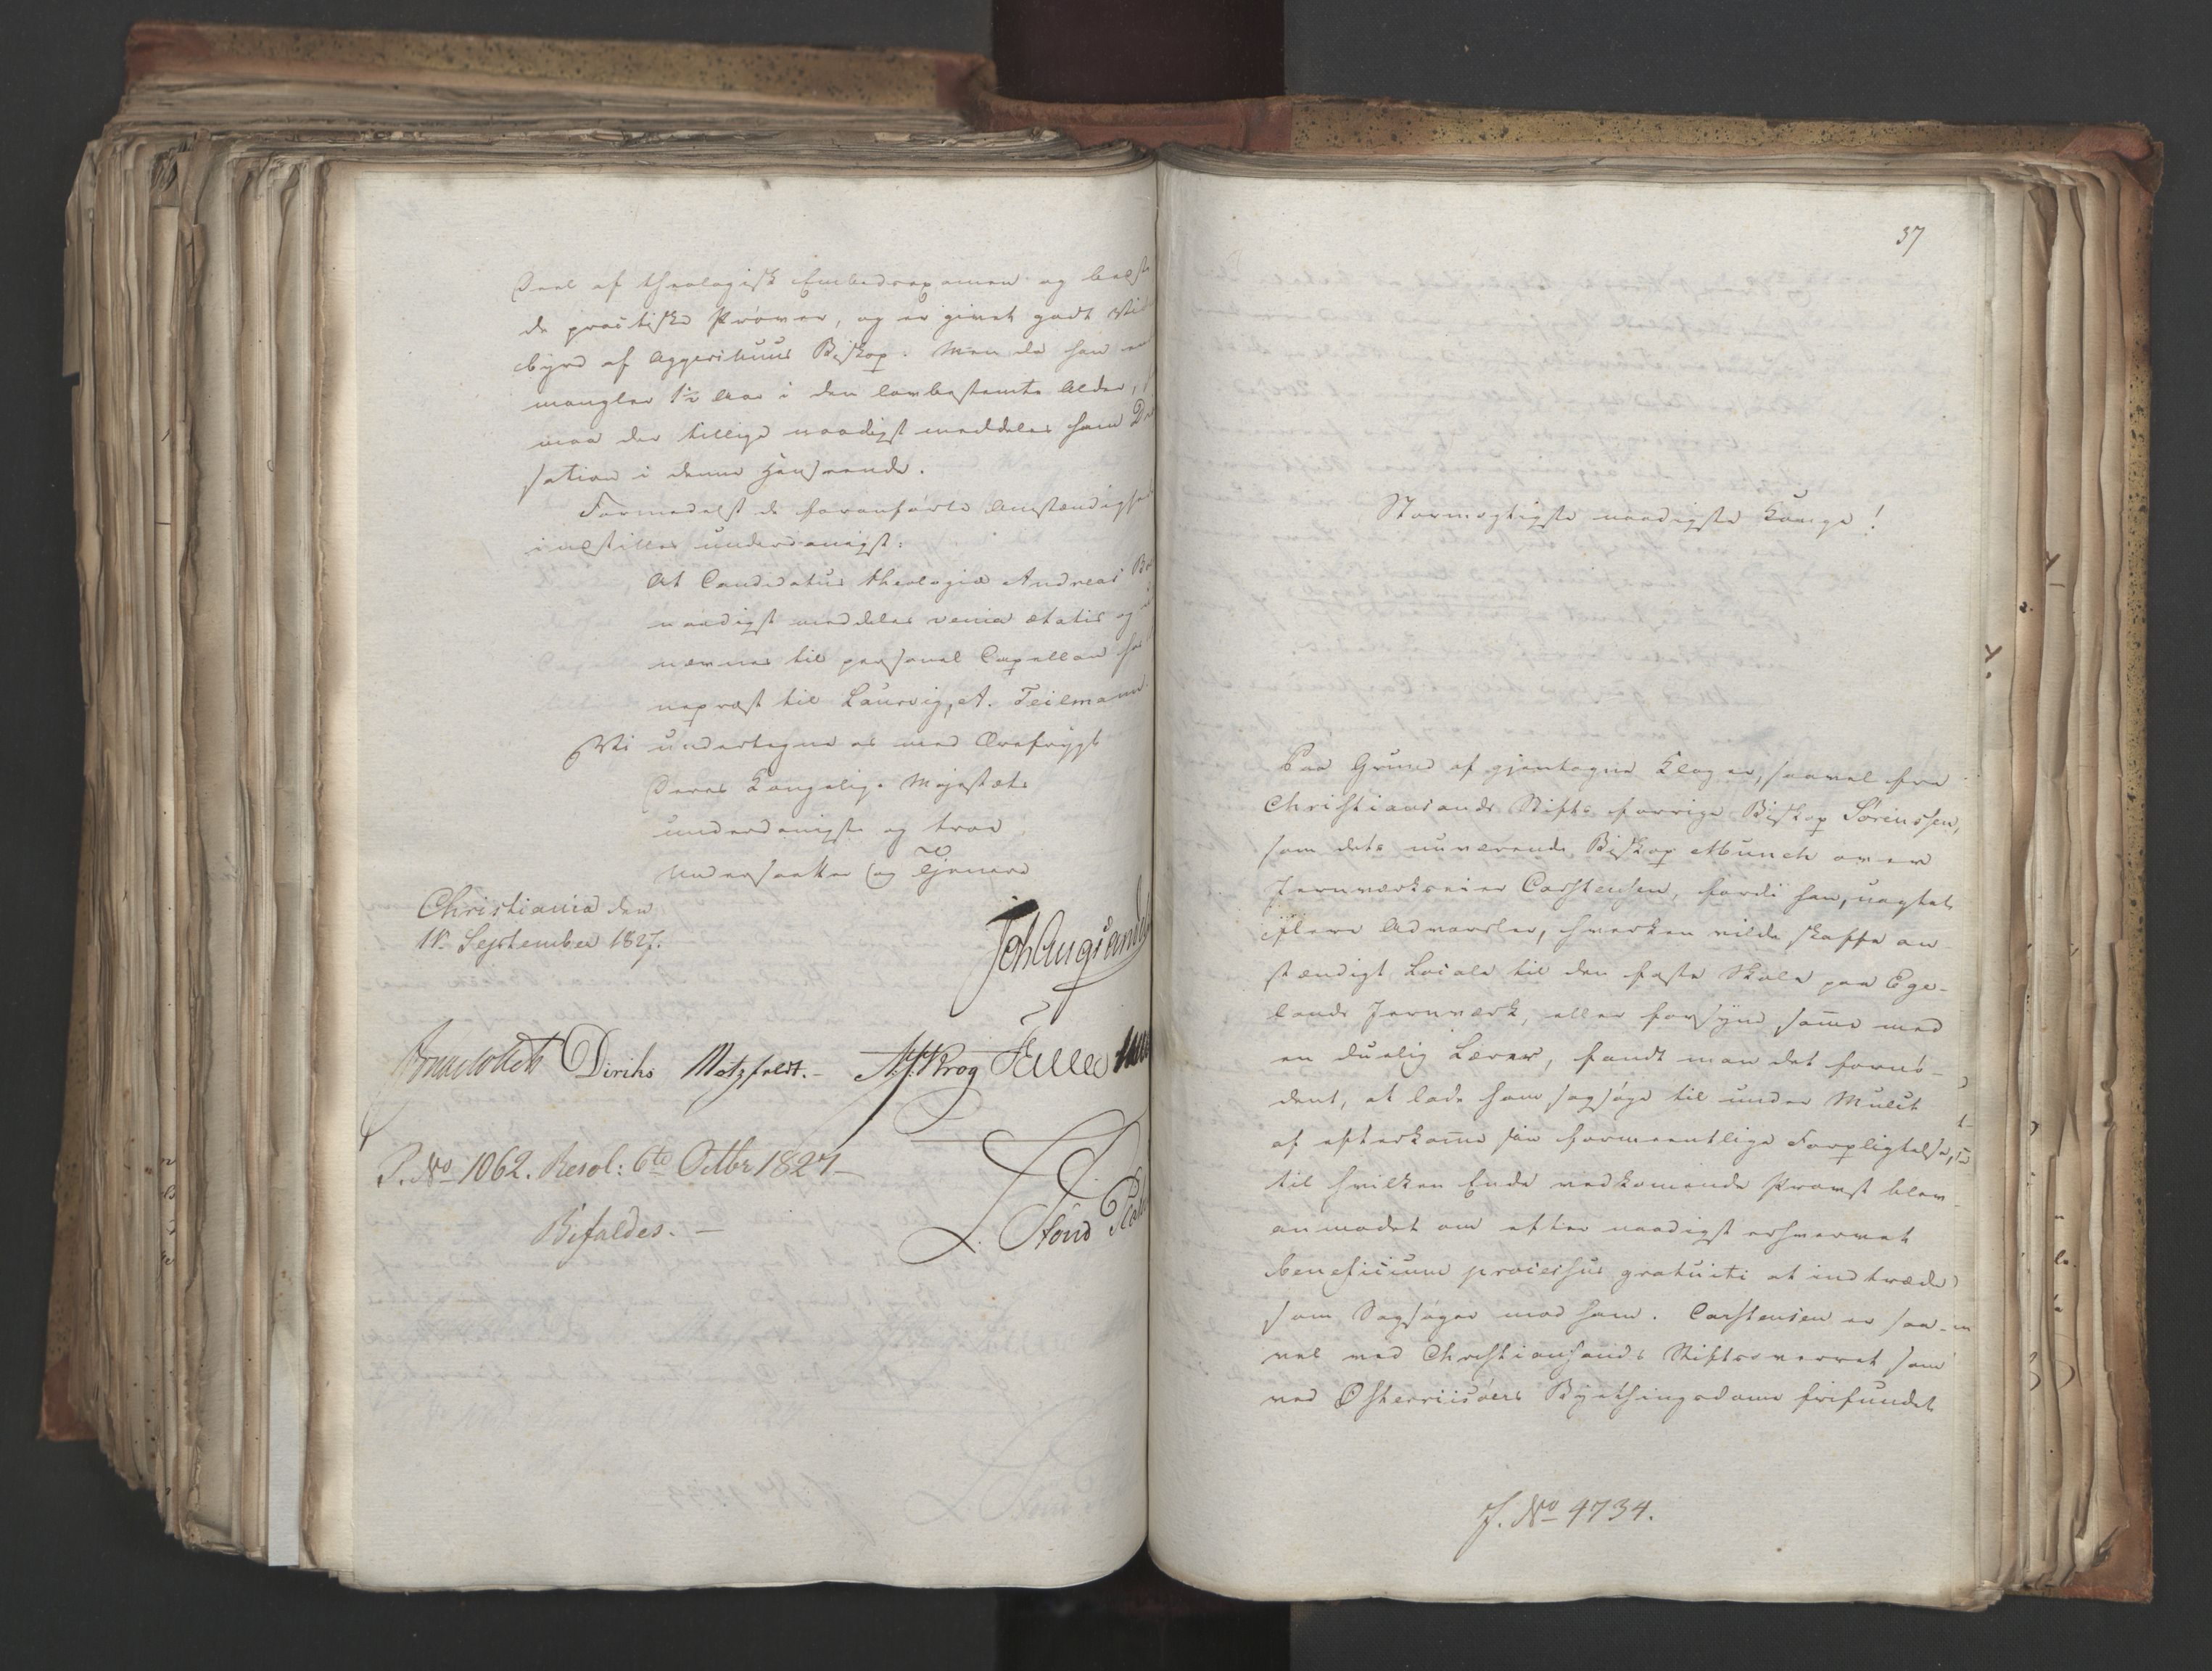 Deel af theologisk Embedsexamen og
de practiske Prøver, og er givet godt
byrd af Aggershuus Biskop. Men da han
mangler 1½ Aar i den lovbestemte Alder,
maa der tillige naadigst meddeles ham
sation i denne Henseende.
Formedelst de foranførte
indstilles underdanigst:
At Candidatus theologiæ Andreas
naadigst meddeles venia ætatis og
nævnes til personel Capellan
nepræst til Laurvig, A. Teilmann.
Vi undertegne os med Ærefrygt
Deres Kongelige Majestæts
underdanigste og troe
Undersaatter og Tjenere
Christiania den
September 1827.
Diriks Motzfeldt. Krog
P. No 1062. Resol: 6te Octbr 1827
Bifaldes. -
37
Stormægtigste naadigste Konge!
Paa Grund af gjentagne Klager, saavel fra
Christiansands Stifts forrige Biskop Sørenssen,
som dets nuværende Biskop Munch over
Jernværkseier Carstensen, fordi han, uagtet
flere Advarsler, hverken vilde skaffe an
stændigt Locale til den faste Skole paa Ege-
lands Jernværk, eller forsyne samme med
en duelig Lærer, fandt man det fornø-
dent, at lade ham sagsøge til under Mulct
at efterkomme sin formeentlige Forpligtelse,
til hvilken Ende vedkommende Provst blev
anmodet om efter naadigst erhvervet
beneficium processus gratuiti at indtræde
som Sagsøger mod ham. Carstensen er saa-
vel ved Christiansands Stiftsoverret som
ved Østerriisøers Byethingsdom frifundet
J. No 4734.